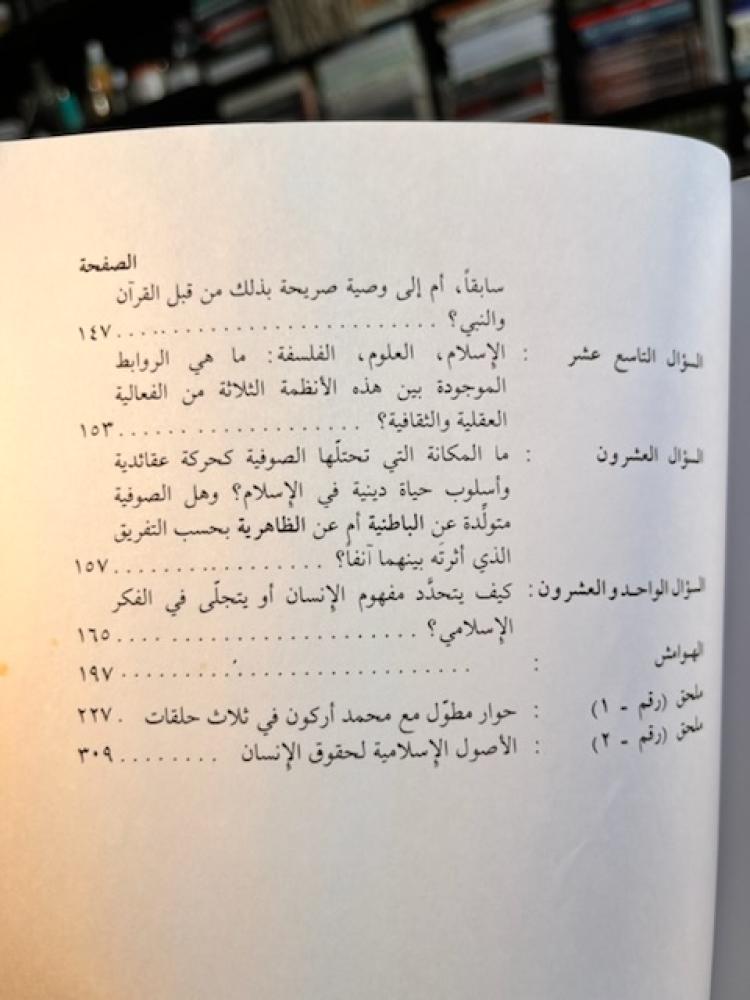 الصفحة
سابقاً، أم إلى وصية صريحة بذلك من قبل القرآن
والنبي؟ .............................. ١٤٧
السؤال التاسع عشر : الإسلام، العلوم، الفلسفة: ما هي الروابط
الموجودة بين هذه الأنظمة الثلاثة من الفعالية
العقلية والثقافية؟ ...................... ١٥٣
السؤال العشرون : ما المكانة التي تحتلّها الصوفية كحركة عقائدية
وأسلوب حياة دينية في الإسلام؟ وهل الصوفية
متولّدة عن الباطنية أم عن الظاهرية بحسب التفريق
الذي أثرتَه بينهما آنفاً؟ .................... ١٥٧
السؤال الواحد والعشرون : كيف يتحدَّد مفهوم الإنسان أو يتجلّى في الفكر
الإسلامي؟ ............................ ١٦٥
الهوامش : .................................. ١٩٧
ملحق (رقم - ١) : حوار مطوّل مع محمد أركون في ثلاث حلقات . ٢٢٧
ملحق (رقم - ٢) : الأصول الإسلامية لحقوق الإنسان ......... ٣٠٩